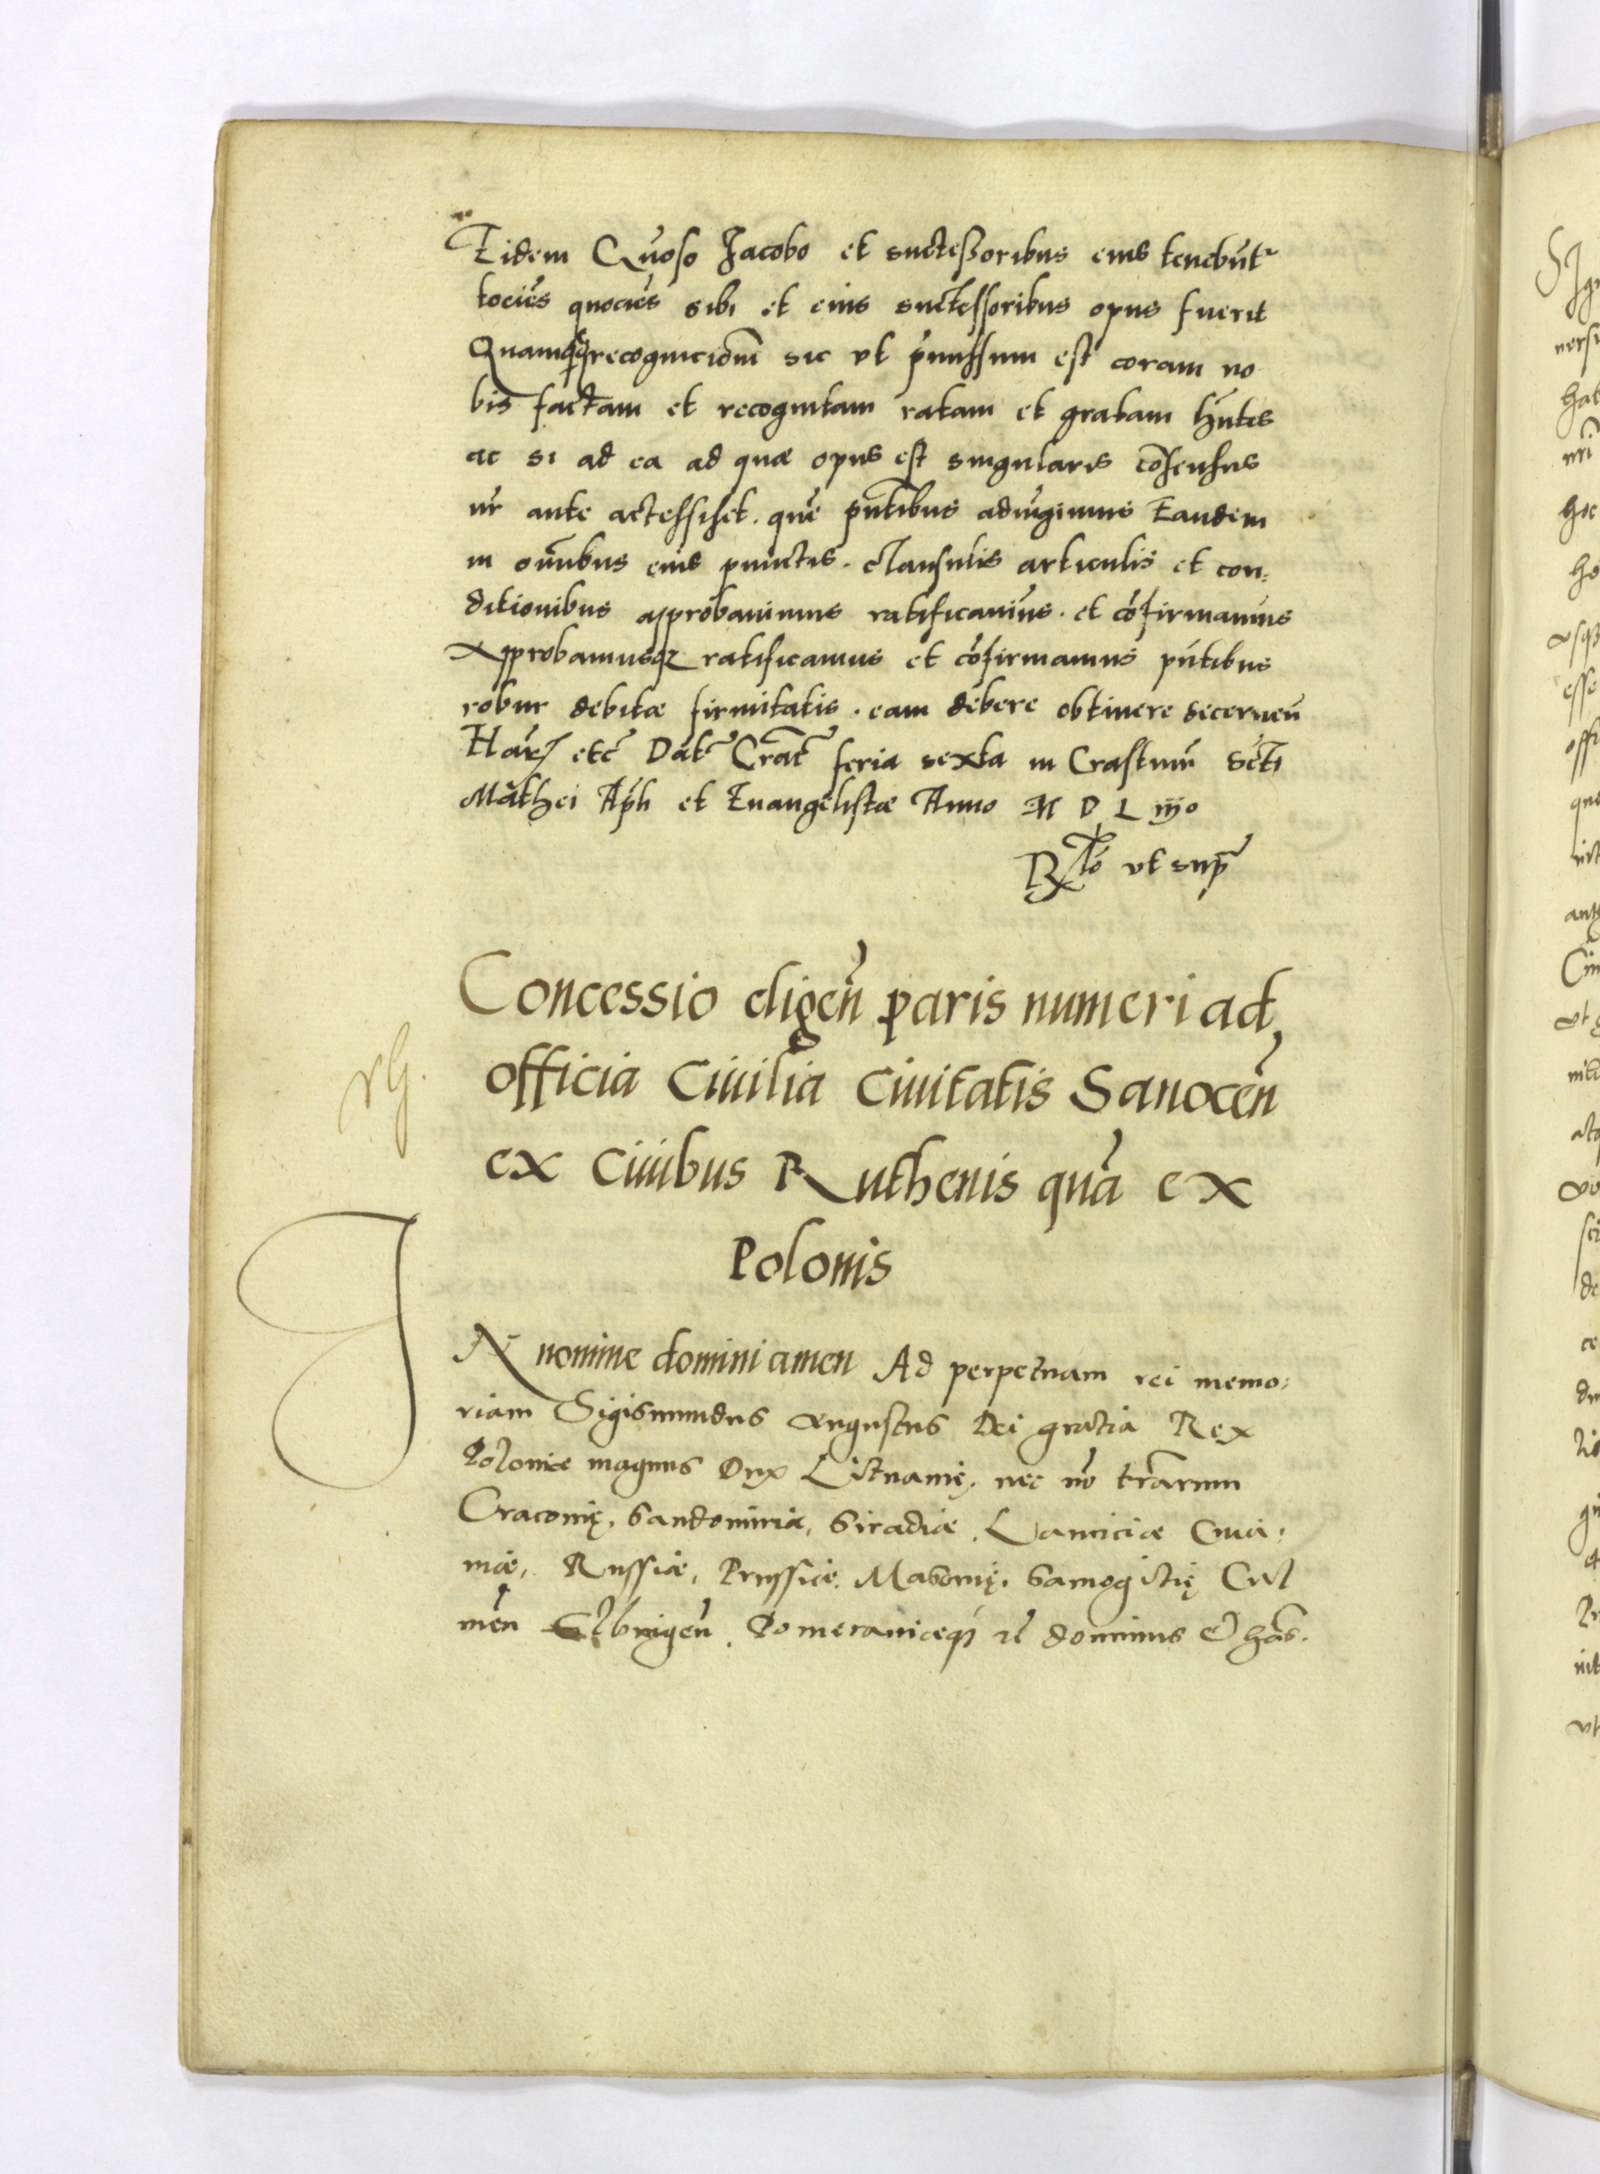 Eidem Gnoso Jacobo et successoribus eius tenebunt
tocies quocies sibi et eius successoribus opus fuerit
Quamqꝫ recognicionē sic vt pmissum est coram no
bis factam et recognitam ratam et gratam hntes
ac si ad ea ad quæ opus est singularis cōsensus
nr ante accessisset. quē pntibus adiūgimus Eandem
in omibus eius punctis. clausulis articulis et con:
ditionibus approbauimus ratificauim⁹. et cōfirmauim⁹
Approbamusqꝫ ratificamus et cōfirmamus pntibus
robur debitæ firmitatis. eam debere obtinere decernen
Harꝫ etc Dat Crac feria sexta in Crastinū Scti
Mathei Apli et Euangelistæ Anno M D L iijo
Rlo vt supr
Concessio eligen paris numeri ad
officia Ciuilia Ciuitatis Sanocen
ex Ciuibus Ruthenis quā ex
Polonis
rG.
IN nomine domini amen Ad perpetuam rei memo:
riam Sigismundus Augustus Dei gratia Rex
Poloniæ magnus Dux Lituanię, nec nō trarum
Cracouię, Sandomiriæ, Siradiæ, Lanciciæ Cuia:
uiæ, Russiæ, Prussiæ, Masouię, Samogitię Cul
mēn Elbingen, Pomeraniæqꝫ rē dominus et hæs.